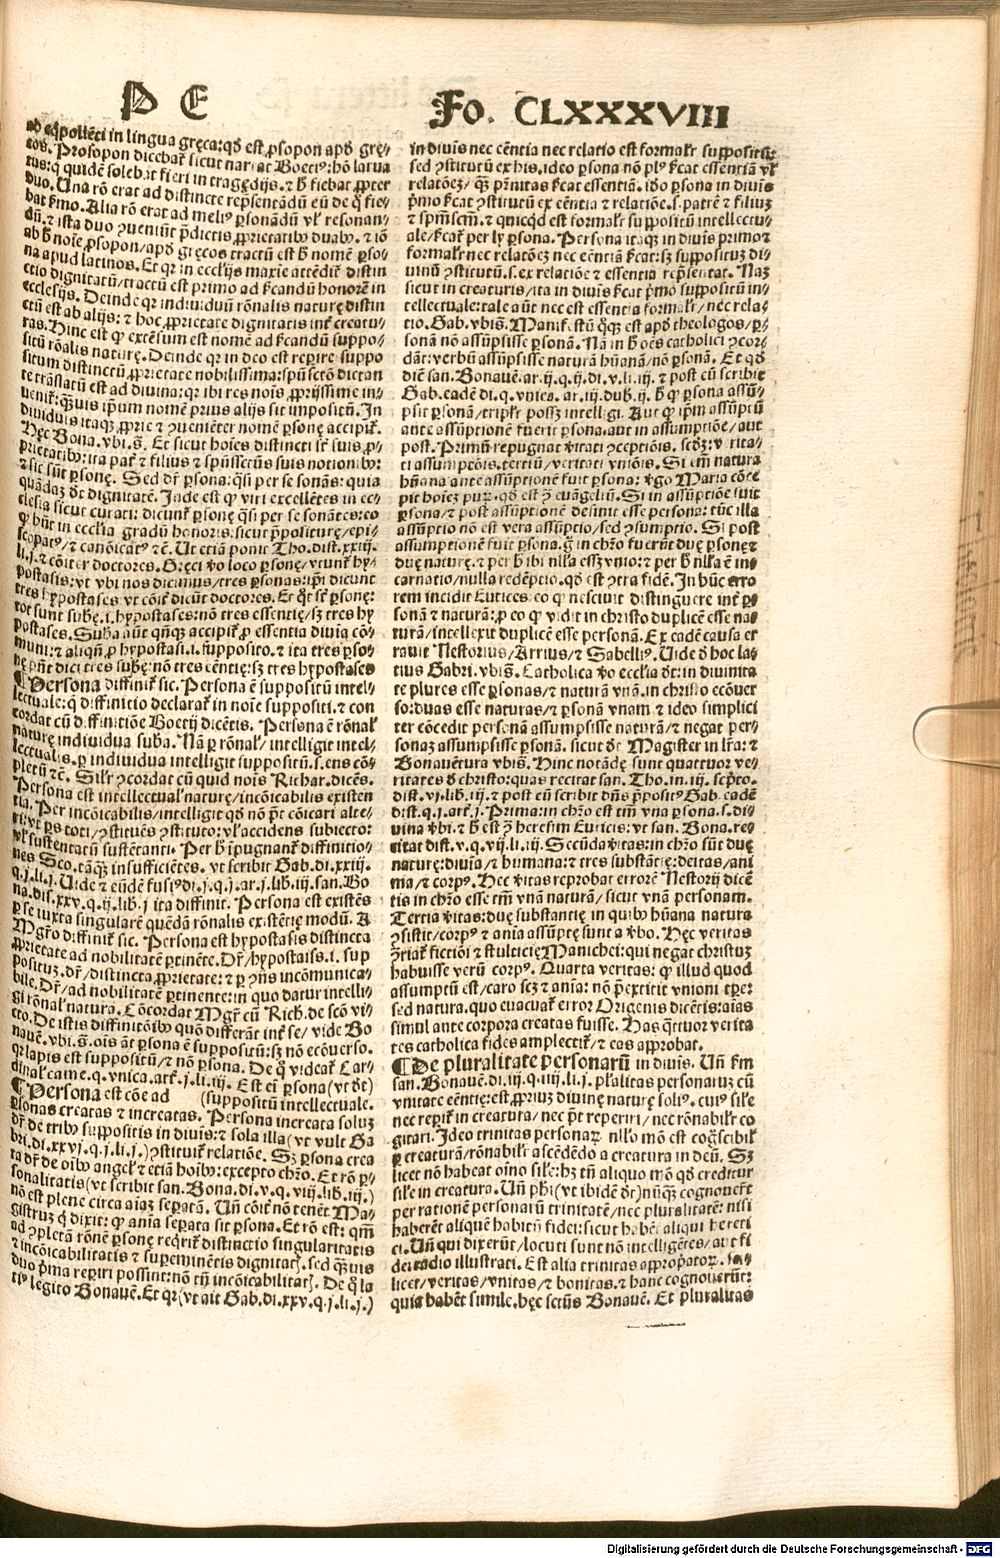 P E
Fo. CLXXXVIII
ad eq̃pollẽti in lingua gręca: qđ est ꝓsopon apđ gręcos.
Prosopon dicebat̃ sicut narrat Boetiꝰ: hõ larua
duo. Una rõ erat ad distincte repñtandũ eũ de q̃ fie-
bat ẽmo. Alia rõ erat ad meliꝰ ꝑsonandũ vĺ resonan-
na apud latinos. Et qꝛ in eccĺijs maxie attẽdit̃ distin
ctio dignitatũ/tractũ est primo ad ẜcandũ honorẽ in
ecclesijs. Deinde qꝛ indiuiduũ rõnalis naturę distin
ctũ est ab alijs: ⁊ hoc ꝓprietate dignitatis int̃ creatu-
ras. Hinc est ꝙ extẽsum est nomẽ ad ẜcandũ suppo-
situ rõalis naturę. Deinde qꝛ in deo est reꝑire suppo
situm distinctũ ꝓprietate nobilissima: spũ sctõ dictan
te trãslatũ est ad diuina: qꝛ ibi res nois ꝓprijssime in-
uenit̃: q̃uis ipm nomẽ prius alijs sit impositũ. In
diuiduis itaqꝫ ꝓprie ⁊ ꝯueniẽter nomẽ ꝑsonę accipit̃.
Hęc Bona. vbi.s̃. Et sicut hoies distincti sĩ suis ꝓ-
prietatibꝰ: ita pat̃ ⁊ filius ⁊ spũssctũs suis notionibꝰ:
⁊ sic sũt ꝑsonę. Sed dr̃ ꝑsona: q̃si per se sonãs: quia
quãdaꝫ đt dignitatẽ. Inde est ꝙ viri excellẽtes in ec-
clesia sicut curati: dicunt̃ ꝑsonę q̃si per se sonãtes: eo
ꝙ hñt in eccĺia gradũ honoris: sicut p̃politurę/epi-
scopatꝰ/⁊ canõicatꝰ ⁊c̃. Ut etiã ponit Tho. dist. xxiij.
li.j. ⁊ cõiter doctores. Gręci ꝟo loco ꝑsonę/vtunt̃ hy-
postasis: vt vbi nos dicimus/tres ꝑsonas: ipi dicunt
tres hypostases vt cõit̃ dicũt doctores. Et q̃t sũt ꝑsonę:
tot sunt subę.i.hypostases: nõ tres essentię/sꝫ tres hy
postases. Suba aũt qñqꝫ accipit̃ ꝓ essentia diuia cõ-
muni: ⁊ aliqñ ꝓ hypostasi.i.supposito. ⁊ ita tres ꝑso-
nę pñt dici tres subę: nõ tres eẽntię: sꝫ tres hypostases
¶ Persona diffinit̃ sic. Persona ẽ suppositũ intel-
lectuale: q̃ diffinitio declarat̃ in noie suppositi. ⁊ con
cordat cũ diffinitiõe Boetij dicẽtis. Persona ẽ rõnaĺ
naturę indiuidua suba. Nã ꝑ rõnaĺ/intelligit intel-
lectualis. ꝑ indiuidua intelligit suppositũ.s.ens cõ-
pletũ ⁊c̃. Siĺr ꝯcordat cũ quid nois Richar. dicẽs.
Persona est intellectuaĺ naturę/incõicabilis existen
tia. Per incõicabilis/intelligit qđ nõ p̃t cõicari alte-
ri: vt ꝑs toti/ꝯstituẽs ꝯstituto: vĺ accidens subiecto:
vĺ sustentatũ sustẽtanti. Per ḣ ip̃ugnant̃ diffinitio-
nes Sco. tãqꝫ insufficiẽtes. vt scribit Gab. di. xxiij.
q.j.li.j. Uide ⁊ eũdẽ fusiꝰ di.j.q.j.ar.j.lib.iij. san. Bo
na. dis. xxv. q.ij. lib. j ita diffinit. Persona est existẽs
ꝑ se iuxta singularẽ quẽdã rõnalis existẽtię modũ. A
Mgrõ diffinit̃ sic. Persona est hypostasis distincta
ꝓprietate ad nobilitatẽ ꝑtinẽte. Dr̃/hypostasis.i.sup
positꝫ. dr̃/distincta ꝓprietate: ⁊ ꝑ ꝯñs incõmunica-
bile. Dr̃/ad nobilitatẽ ꝑtinente: in quo datur intelli-
gi rõnaĺ natura. Cõcordat Mgr̃ cũ Rich. de scõ vi-
cto. De istis diffinitõibꝰ quõ differãt int̃ se/vide Bo
nauẽ. vbi.s̃. ois ãt ꝑsona ẽ suppositũ: sꝫ nõ ecõuerso.
qꝛ lapis est suppositũ/⁊ nõ ꝑsona. De q̃ videat̃ Car-
dinaĺ came. q. vnica. art̃. j. li. iij. Est eĩ ꝑsona (vt đt)
¶ Persona est cõe ad (suppositũ intellectuale.
ꝑsonas creatas ⁊ increatas. Persona increata soluꝫ
dr̃ de tribꝰ suppositis in diuis: ⁊ sola illa (vt vult Ga
bri. di. xxvj. q.j.li.j.) ꝯstituit̃ relatiõe. Sꝫ ꝑsona crea
ta dr̃ de oibꝰ angeĺ ⁊ etiã hoibꝰ: excepto chrõ. Et rõ ꝑ-
sonalitatis (vt scribit san. Bona. di. v. q. viij. lib. iij.)
nõ est plene circa aiaꝫ seꝑatã. Uñ cõit̃ nõ tenet̃ Ma-
gistrꝰ q̃ dixit: ꝙ ania seꝑata sit ꝑsona. Et rõ est: qm̃
ad ꝯpletã rõnẽ ꝑsonę reqrit̃ distinctio singularitatis
⁊ incõicabilitatis ⁊ suꝑeminẽtis dignitat̃. sed q̃uis
duo p̃ma reꝑiri possint: nõ tñ incõicabilitat̃. De q̃ la
tiꝰ legito Bonauẽ. Et qꝛ (vt ait Gab. di. xxv. q.j.li.j.)
in diuis nec eẽntia nec relatio est formaĺr suppositũ:
sed ꝯstitutũ ex his. ideo ꝑsona nõ plꝰ ẜcat essentiã vĺ
relatõeꝫ/qꝫ p̃nitas ẜcat essentiã. iđo ꝑsona in diuis
p̃mo ẜcat ꝯstitutũ ex eẽntia ⁊ relatiõe.s. patrẽ ⁊ filiuꝫ
⁊ spm̃scm̃. ⁊ quicqđ est formaĺr suppositũ intellectu-
ale/ẜcat̃ per ly ꝑsona. Persona itaqꝫ in diuis primo ⁊
formaĺr nec relatõeꝫ nec eẽntiã ẜcat: sꝫ suppositꝫ di-
uinũ ꝯstitutũ.s.ex relatiõe ⁊ essentia repñtat. Naꝫ
sicut in creaturis/ita in diuis ẜcat p̃mo suppositũ in-
tellectuale: tale aũt nec est essentia formaĺr/nec rela-
tio. Gab. vbi.s̃. Manifestũ q̃qꝫ est apđ theologos/ꝑ-
sonã nõ assũpsisse ꝑsonã. Nã in ḣ oẽs catholici ꝯcor-
dãt: verbũ assũpsisse naturã hũanã/nõ ꝑsonã. Et qđ
diẽ san. Bonauẽ. ar. ij. q. ij. di. v. li. iij. ⁊ post eũ scribit
Gab. eadẽ di. q. vnica. ar. iij. dub. ij. ḣ ꝙ ꝑsona assũ-
psit ꝑsonã/tripĺr possꝫ intelligi. Aut ꝙ ipm̃ assũptũ
ante assũptionẽ fuerit ꝑsona. aut in assumptiõe/aut
post. Primũ repugnat ꝟitati ꝯceptiõis. scđꝫ: ꝟita-
ti assumptõis. tertiũ/veritati vniõis. Si em̃ natura
hũana ante assũptionẽ fuit ꝑsona: ꝟgo Maria cõce
pit hoieꝫ puꝝ. qđ est ꝯ̃ euãgeliũ. Si in assũptiõe fuit
ꝑsona/⁊ post assũptionẽ desinit esse persona: tũc illa
assũptio nõ est vera assũptio/sed ꝯsumptio. Si post
assumptionẽ fuit ꝑsona. g̃ in chrõ fuerũt duę ꝑsonę ⁊
duę naturę. ⁊ per ḣ ibi nĺla essꝫ vnio: ⁊ per ḣ nĺla ẽ in
carnatio/nulla redẽptio. qđ est ꝯtra fidẽ. In hũc erro
rem incidit Eutices: eo ꝙ nesciuit distinguere int̃ ꝑ
sonã ⁊ naturã: ꝓ eo ꝙ vidit in christo duplicẽ esse na
turã/intellexit duplicẽ esse personã. Ex eadẽ causa er
rauit Nestorius/Arrius/⁊ Sabelliꝰ. Uide đ hoc la-
tius Gabri. vbi.s̃. Catholica ꝟo eccĺia đt: in diuinita
te plures esse ꝑsonas/⁊ naturã vnã. in christo ecõuer
so: duas esse naturas/⁊ ꝑsonã vnam. ⁊ ideo simplici
ter cõcedit personã assumpsisse naturã/⁊ negat per-
sonaꝫ assumpsisse ꝑsonã. sicut đt Magister in lr̃a: ⁊
Bonauẽtura vbi.s̃. Hinc notãdę sunt quattuor ve-
ritates đ christo: quas recitat san. Tho. in. iij. scpto.
dist. vj. lib. iij. ⁊ post eũ scribit dñs p̃positꝰ Gab. eadẽ
dist. q.j. art̃. j. Prima: in chrõ est tm̃ vna ꝑsona.s.di-
uina ꝟbi. ⁊ ḣ est ꝯ̃ heresim Euticis: vt san. Bona. re-
citat dist. v. q. vij. li. iij. Secũda ꝟitas: in chrõ sũt duę
naturę: diuia/⁊ humana: ⁊ tres substãtię: deitas/ani
ma/⁊ corpꝰ. Hec ꝟitas reprobat errorẽ Nestorij dicẽ
tis in chrõ esse tm̃ vnã naturã/sicut vnã personam.
Tertia ꝟitas: duę substantię in quibꝰ hũana natura
ꝯsistit/corpꝰ ⁊ ania assũptę sunt a ꝟbo. Hęc veritas
ꝯ̃riat̃ fictiõi ⁊ stulticię Manichei: qui negat christuꝫ
habuisse verũ corpꝰ. Quarta veritas: ꝙ illud quod
assumptũ est/caro scꝫ ⁊ ania: nõ p̃extitit vnioni tꝑe:
sed natura. quo euacuat̃ error Origenis dicẽtis: aias
simul ante corpora creatas fuisse. Has q̃ttuor verita
tes catholica fides amplectit̃/⁊ eas approbat.
¶ De pluralitate personarũ in diuis. Uñ ẜm
san. Bonauẽ. di. iij. q. iiij. li. j. pĺalitas personaruꝫ cũ
vnitate eẽntię: est ꝓpriuꝫ diuinę naturę soliꝰ. cuiꝰ siĺe
nec reꝑit̃ in creatura/nec p̃t reperiri/nec rõnabiĺr co
gitari. Ideo trinitas personaꝝ nĺlo mõ est cog̃scibiĺ
ꝑ creaturã/rõnabiĺr ascẽdẽdo a creatura in deũ. Sꝫ
licet nõ habeat oino siĺe: hꝫ tñ aliquo mõ qđ creditur
siĺe in creatura. Uñ phi (vt ibidẽ đt) nũqꝫ cognouerũt
per rationẽ personarũ trinitatẽ/nec pluralitatẽ: nisi
haberẽt aliquẽ habitũ fidei: sicut habẽt aliqui hereti
ci. Uñ qui dixerũt/locuti sunt nõ intelligẽtes/aut fi
dei radio illustrati. Est alia trinitas appropriatoꝝ. sci-
licet/veritas/vnitas/⁊ bonitas. ⁊ hanc cognouerũt:
quia habẽt simile. hęc sctũs Bonauẽ. Et pluralitas
Digitalisierung gefördert durch die Deutsche Forschungsgemeinschaft - DFG